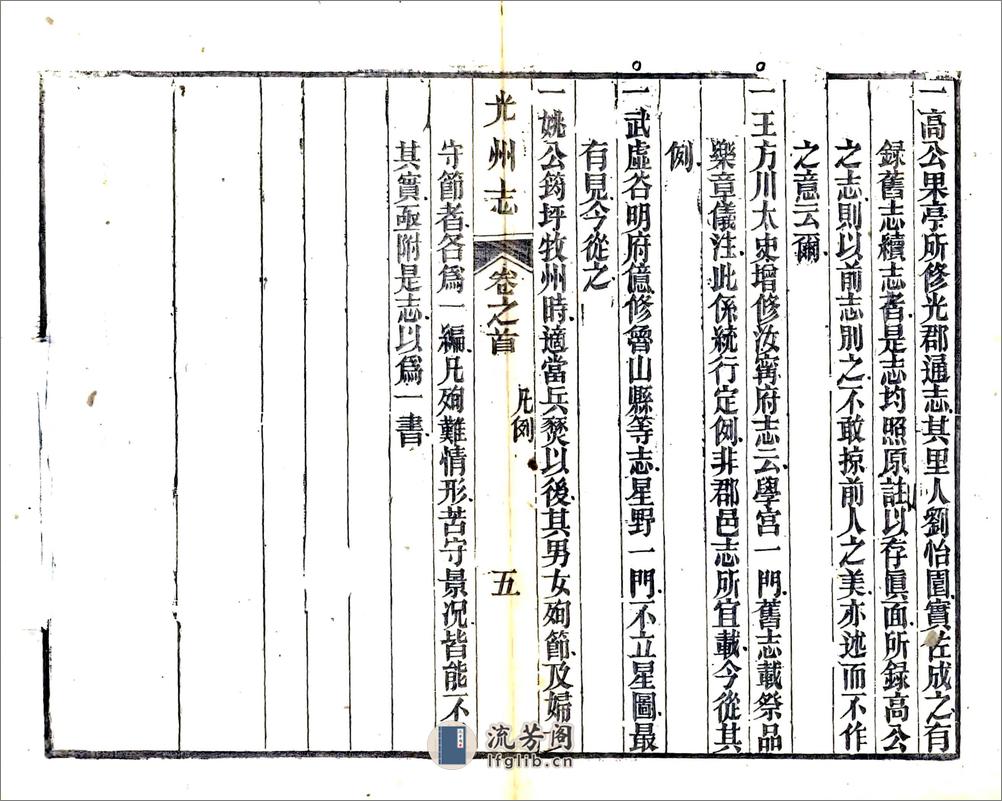 一高公果亭所修光郡通志其里人劉怡園實佐成之有
錄舊志續志者是志均照原註以存眞面所錄高公
之志則以前志別之不敢掠前人之美亦述而不作
之意云爾
一王方川太史增修汝寗府志云學宮一門舊志載祭品
樂章儀注此係統行定例非郡邑志所宜載今從其
例
一武虛谷明府億修魯山縣等志星野一門不立星圖最
有見今從之
一姚公筠坪牧州時適當兵燹以後其男女殉節及婦
光州志
卷之首
凡例
五
守節者各爲一編凡殉難情形苦守景况皆能不
其實亟附是志以爲一書
流芳阁
lfglib.cn